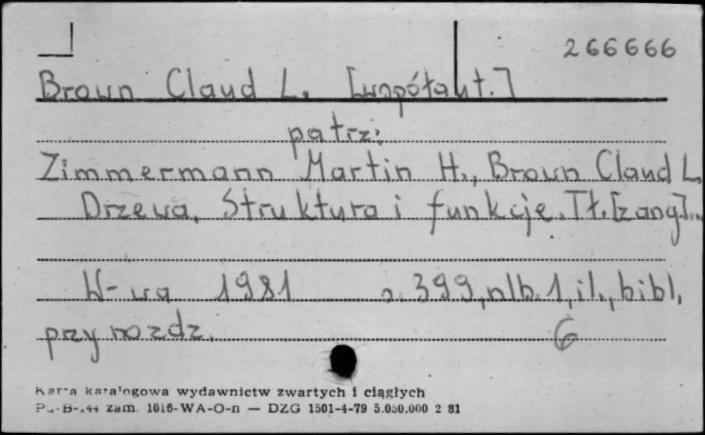 266666
Brown Claud L. [współaut.]
patrz:
Zimmermann Martin H., Brown Claud L.
Drzewa. Struktura i funkcje. Tł. [z ang]...
W-wa 1981 s. 399, nlb. 1, il., bibl.
przy rozdz. 6
Karta katalogowa wydawnictw zwartych i ciągłych
Pu-B-144 zam. 1016-WA-O-n — DZG 1501-4-79 5.050.000 2 81